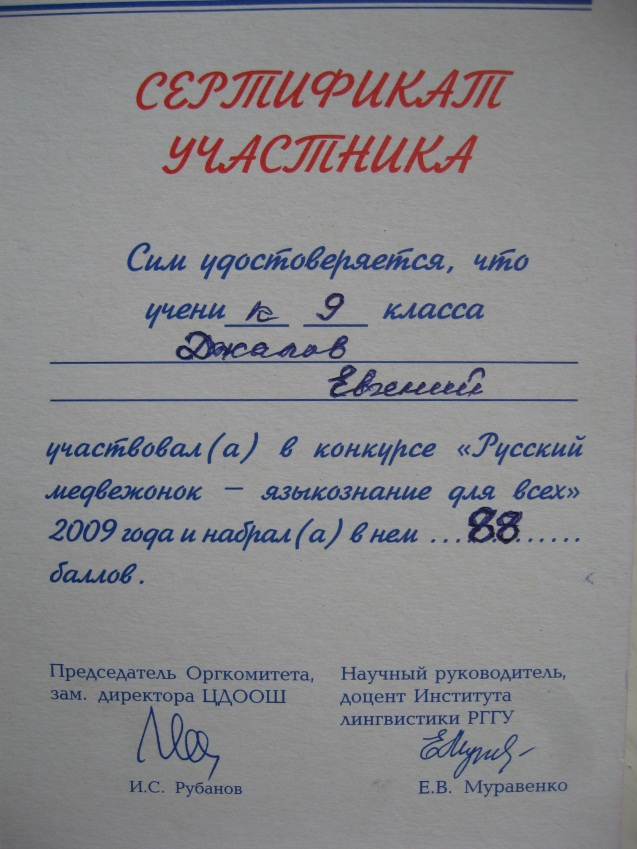 СЕРТИФИКАТ
УЧАСТНИКА
Сим удостоверяется, что
учени к 9 класса
Джалов
Евгений
участвовал(а) в конкурсе «Русский
медвежонок – языкознание для всех»
2009 года и набрал(а) в нем ....88............
баллов.
Председатель Оргкомитета,
зам. директора ЦДООШ
И.С. Рубанов
Научный руководитель,
доцент Института
лингвистики РГГУ
Е.В. Муравенко